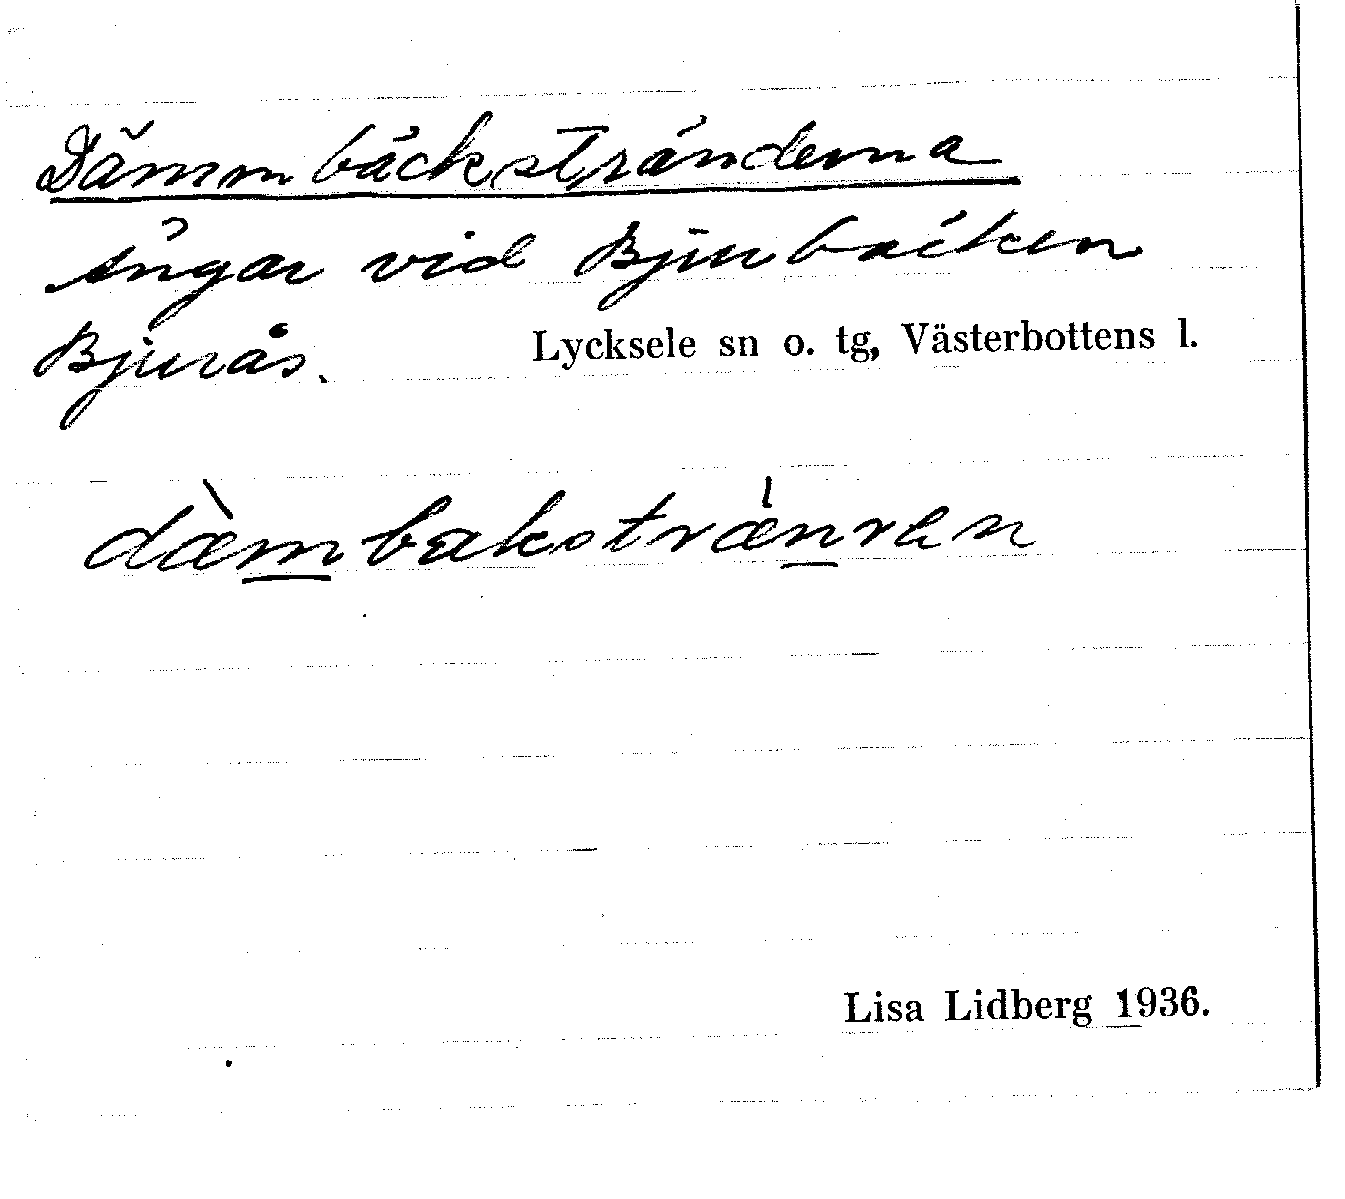 Dämmbäckstränderna
Ängar vid Bjurbäcken
Bjurås. Lycksele sn o. tg, Västerbottens l.
dæ̀mbækstræ̀nren
Lisa Lidberg 1936.